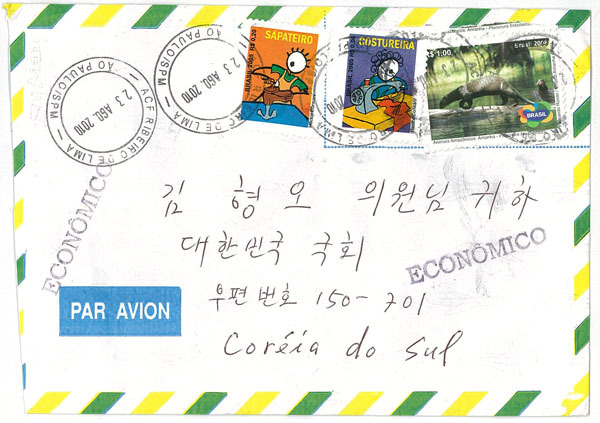 SAPATEIRO
BRASIL 2005 R$ 0,20
COSTUREIRA
BRASIL 2005 R$ 0,05
R$ 1,00
Brasil 2010
BRASIL
ÃO PAULO/SPM
23 AGO. 2010
ACF RIBEIRO DE LIMA
ÃO PAULO/SPM
23 AGO. 2010
ECONÔMICO
김 형 오 의원님 귀하
대한민국 국회
ECONÔMICO
우편번호 150-701
PAR AVION
Coréia do Sul